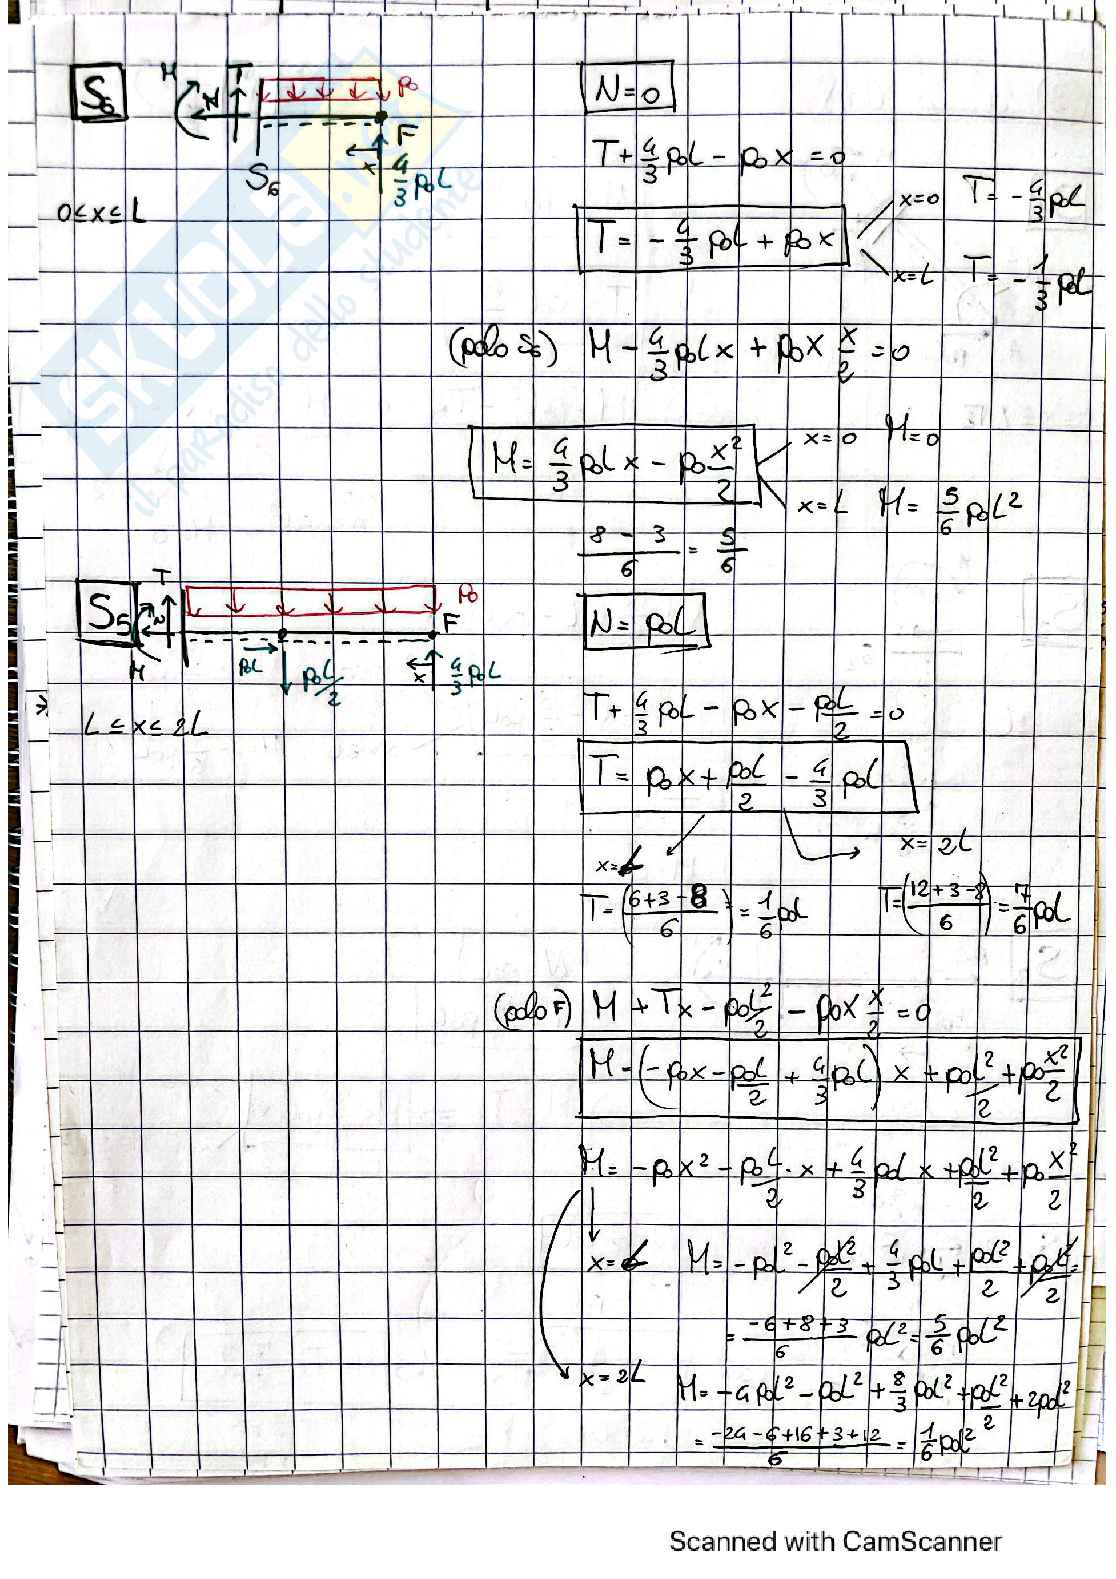 S6
M
T
N
p₀
F
x
S6
4/3 p₀L
0≤x≤L
N=0
T+4/3 p₀L - p₀x = 0
T = -4/3 p₀L + p₀x
x=0 T=-4/3 p₀L
x=L T=-1/3 p₀L
(polo S6) M - 4/3 p₀Lx + p₀x x/2 = 0
M = 4/3 p₀Lx - p₀ x²/2
x=0 M=0
x=L M= 5/6 p₀L²
8-3/6 = 5/6
S5
T
N
M
p₀
F
p₀L
p₀L/2
x
4/3 p₀L
L≤x≤2L
N= p₀L
T+ 4/3 p₀L - p₀x - p₀L/2 = 0
T= p₀x + p₀L/2 - 4/3 p₀L
x=L
T=(6+3-8/6) = 1/6 p₀L
x=2L
T=(12+3-8/6) = 7/6 p₀L
(polo F) M + Tx - p₀L²/2 - p₀x x/2 = 0
M-(-p₀x - p₀L/2 + 4/3 p₀L) x + p₀L²/2 + p₀ x²/2
M= -p₀x² - p₀L/2 · x + 4/3 p₀L x + p₀L²/2 + p₀ x²/2
x=L M= -p₀L² - p₀L²/2 + 4/3 p₀L + p₀L²/2 + p₀L²/2 =
= -6+8+3/6 p₀L² = 5/6 p₀L²
x=2L M= -4p₀L² - p₀L² + 8/3 p₀L² + p₀L²/2 + 2p₀L²
= -24-6+16+3+12/6 = 1/6 p₀L²
SKUOLA.net
il paradiso dello studente
Scanned with CamScanner